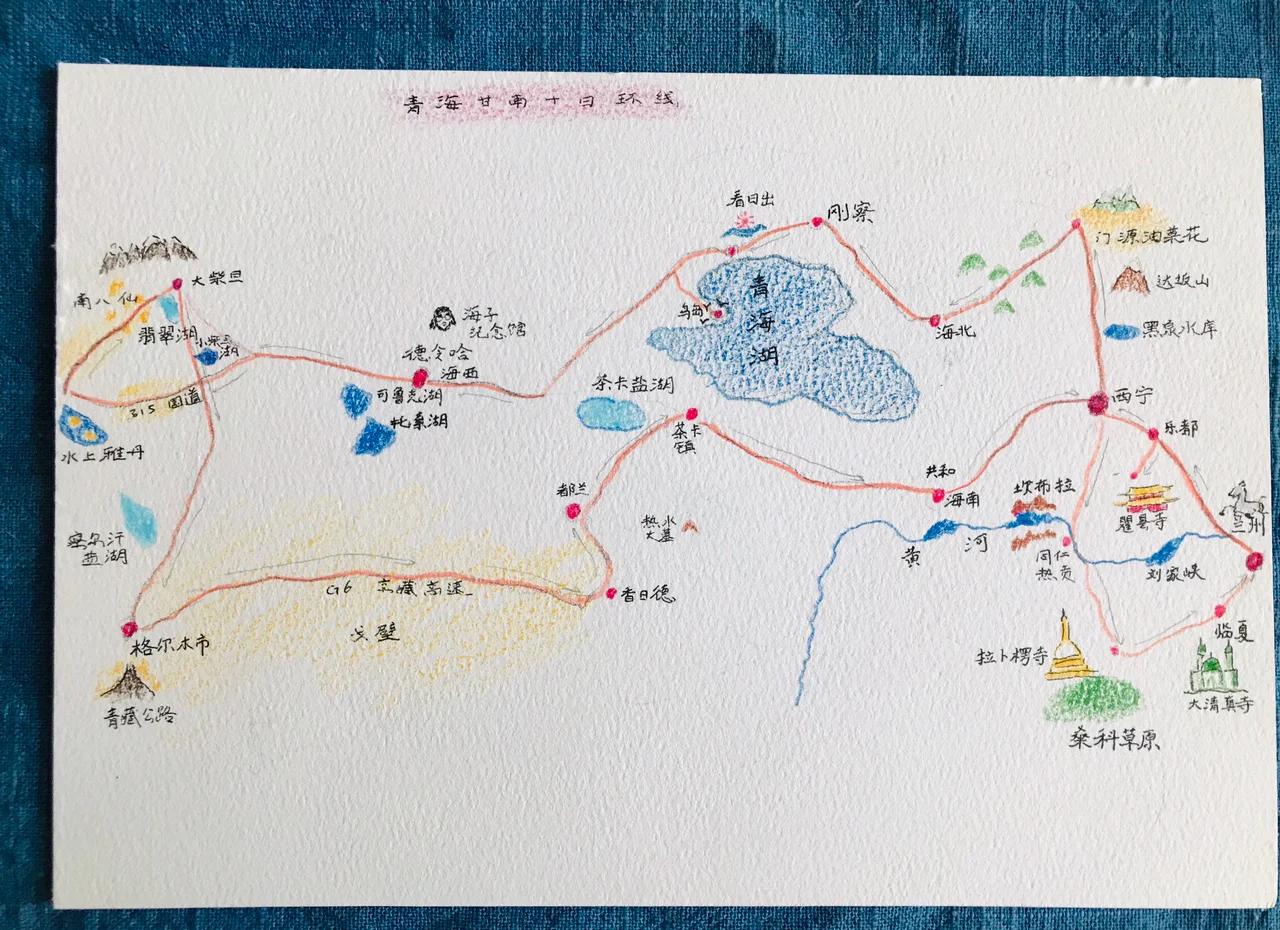 青海甘南十日环线
看日出
刚察
门源油菜花
大柴旦
南八仙
达坂山
青海湖
鸟岛
海子
纪念馆
翡翠湖
小柴旦
湖
海北
黑泉水库
德令哈
海西
茶卡盐湖
可鲁克湖
托素湖
315 国道
西宁
茶卡
镇
乐都
水上雅丹
共和
海南
都兰
坎布拉
瞿昙寺
兰州
热水
大墓
察尔汗
盐湖
黄河
同仁
热贡
刘家峡
G6 京藏高速
香日德
戈壁
格尔木市
临夏
拉卜楞寺
青藏公路
大清真寺
桑科草原